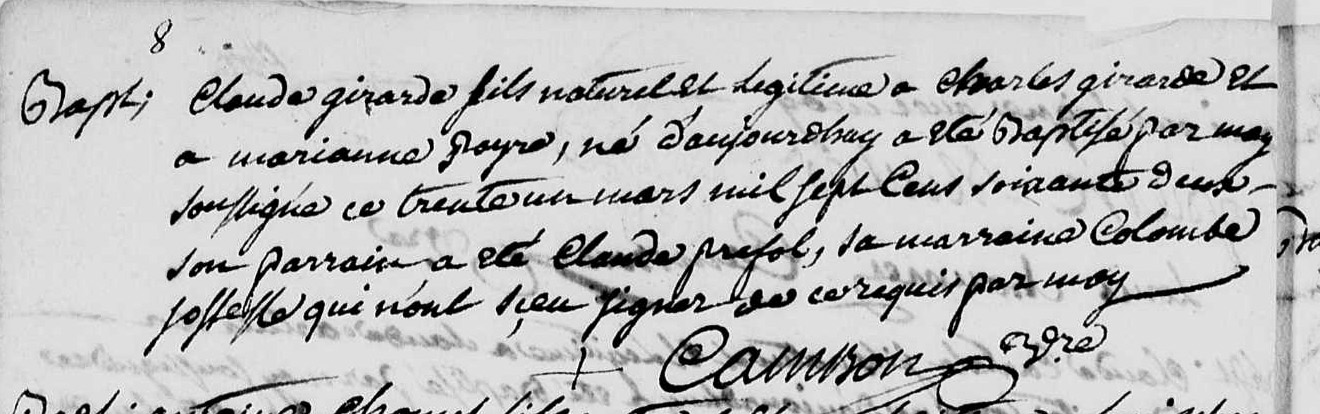 8
Bapt; Claude girarde fils naturel et legitime a charles girarde et
a marianne payre, né d'aujourdhuy a eté Baptisé par moy
soussigné ce trente un mars mil sept Cens soixante deux
son parrain a eté Claude , sa marraine Colombe
qui n'ont sçeu signer de ce requis par moy